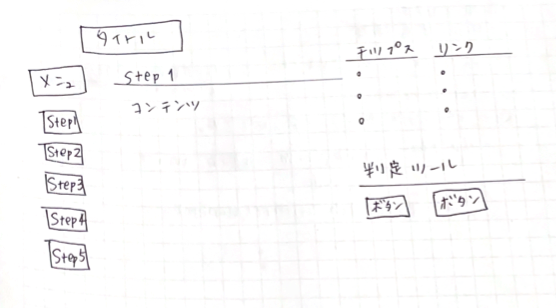 タイトル
メニュー
Step1
Step2
Step3
Step4
Step5
Step 1
コンテンツ
チップス
リンク
判定ツール
ボタン
ボタン